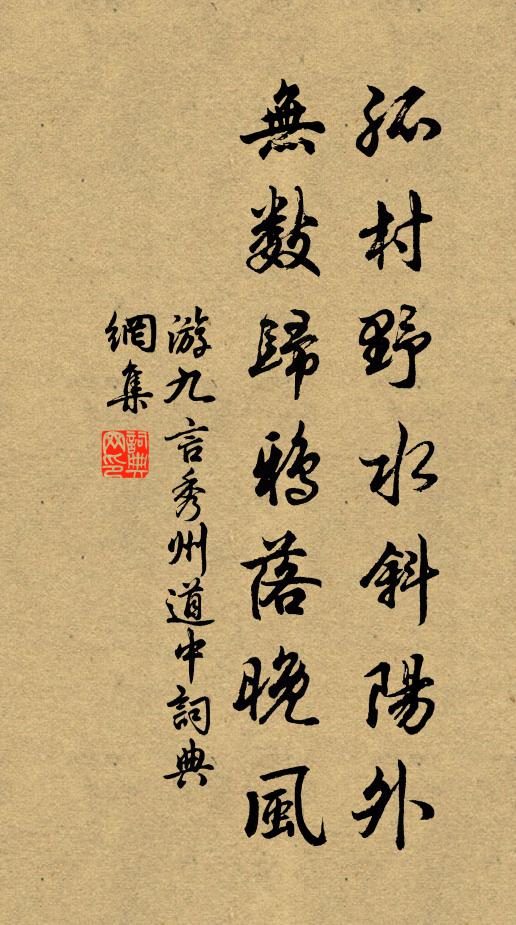 孤村野水斜陽外
無數歸鴉落晚風
游九言秀州道中詞典
網集
詞典網印